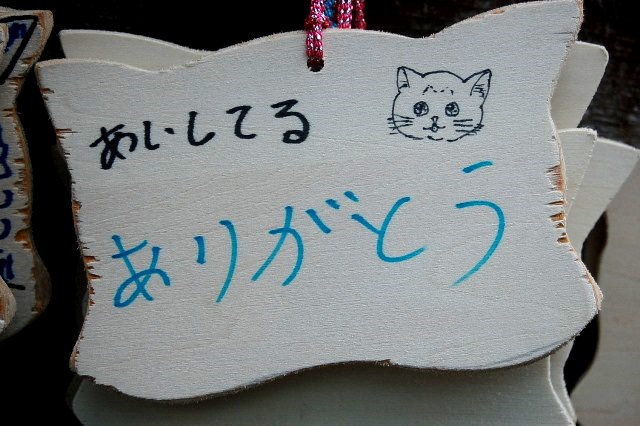 あいしてる
ありがとう